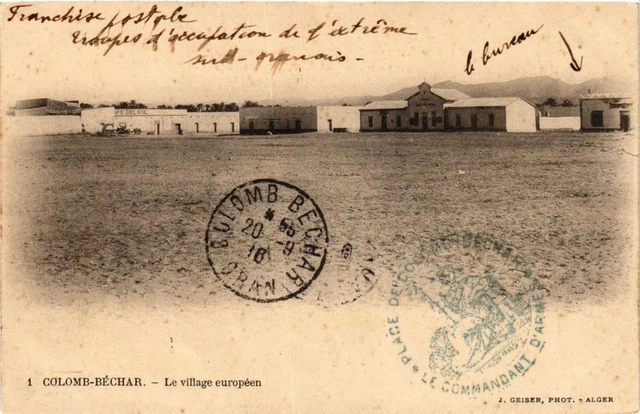 Franchise postale
troupes d'occupation de l'extrême
sud-oranais-
le bureau
COLOMB BÉCHAR
* 55
20 -9
16
ORAN
PLACE DE COLOMB-BÉCHAR
LE COMMANDANT D'ARMES
1 COLOMB-BÉCHAR. - Le village européen
J. GEISER, PHOT. - ALGER